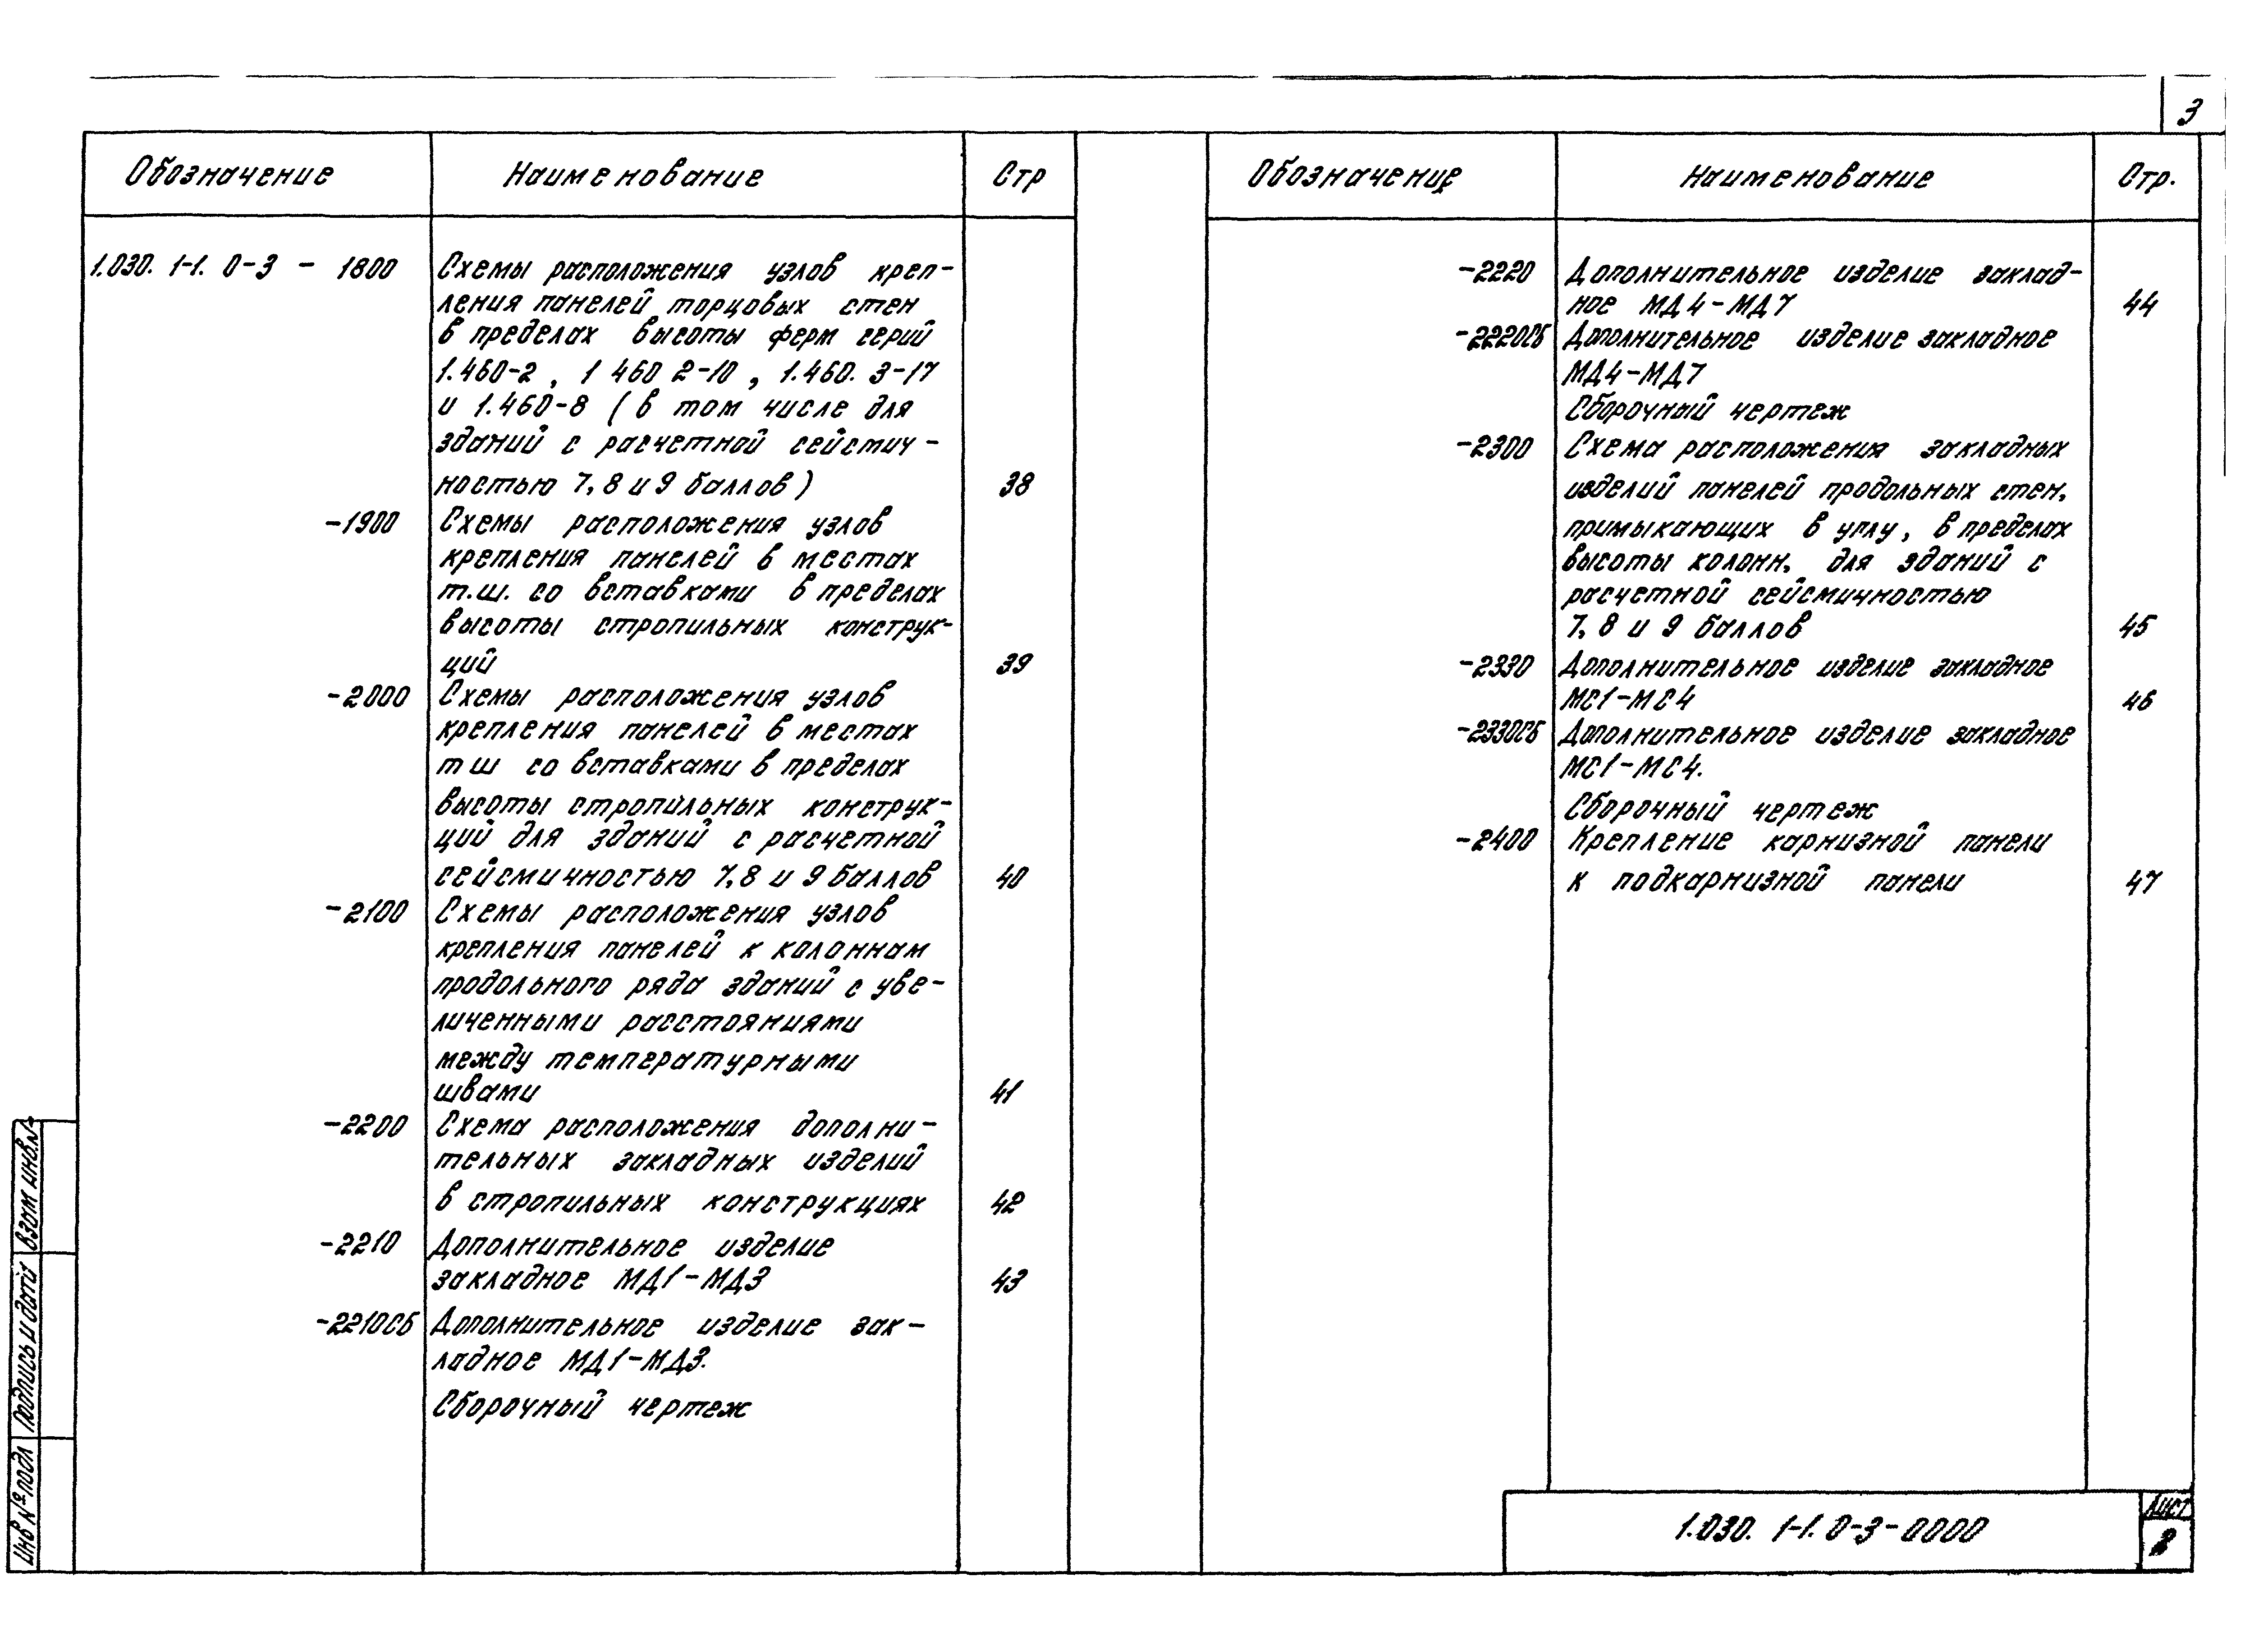 3
Обозначение Наименование Стр
1.030. 1-1. 0-3 - 1800 Схемы расположения узлов креп-
ления панелей торцовых стен
в пределах высоты ферм серий
1.460-2 , 1 460 2-10 , 1.460. 3-17
и 1.460-8 ( в том числе для
зданий с расчетной сейсмич -
ностью 7, 8 и 9 баллов ) 38
-1900 Схемы расположения узлов
крепления панелей в местах
т.ш. со вставками в пределах
высоты стропильных конструк-
ций 39
-2000 Схемы расположения узлов
крепления панелей в местах
т ш со вставками в пределах
высоты стропильных конструк-
ций для зданий с расчетной
сейсмичностью 7,8 и 9 баллов 40
-2100 Схемы расположения узлов
крепления панелей к колоннам
продольного ряда зданий с уве-
личенными расстояниями
между температурными
швами 41
-2200 Схема расположения дополни-
тельных закладных изделий
в стропильных конструкциях 42
-2210 Дополнительное изделие
закладное МД1-МД3 43
-2210СБ Дополнительное изделие зак-
ладное МД1-МД3.
Сборочный чертеж
Обозначение Наименование Стр.
-2220 Дополнительное изделие заклад-
ное МД4-МД7 44
-2220СБ Дополнительное изделие закладное
МД4-МД7
Сборочный чертеж
-2300 Схема расположения закладных
изделий панелей продольных стен,
примыкающих в углу, в пределах
высоты колонн, для зданий с
расчетной сейсмичностью
7, 8 и 9 баллов 45
-2330 Дополнительное изделие закладное
МС1-МС4 46
-2330СБ Дополнительное изделие закладное
МС1-МС4.
Сборочный чертеж
-2400 Крепление карнизной панели
к подкарнизной панели 47
1.030. 1-1. 0-3-0000
Лист
2
Инв № подл Подпись и дата Взам инв.№